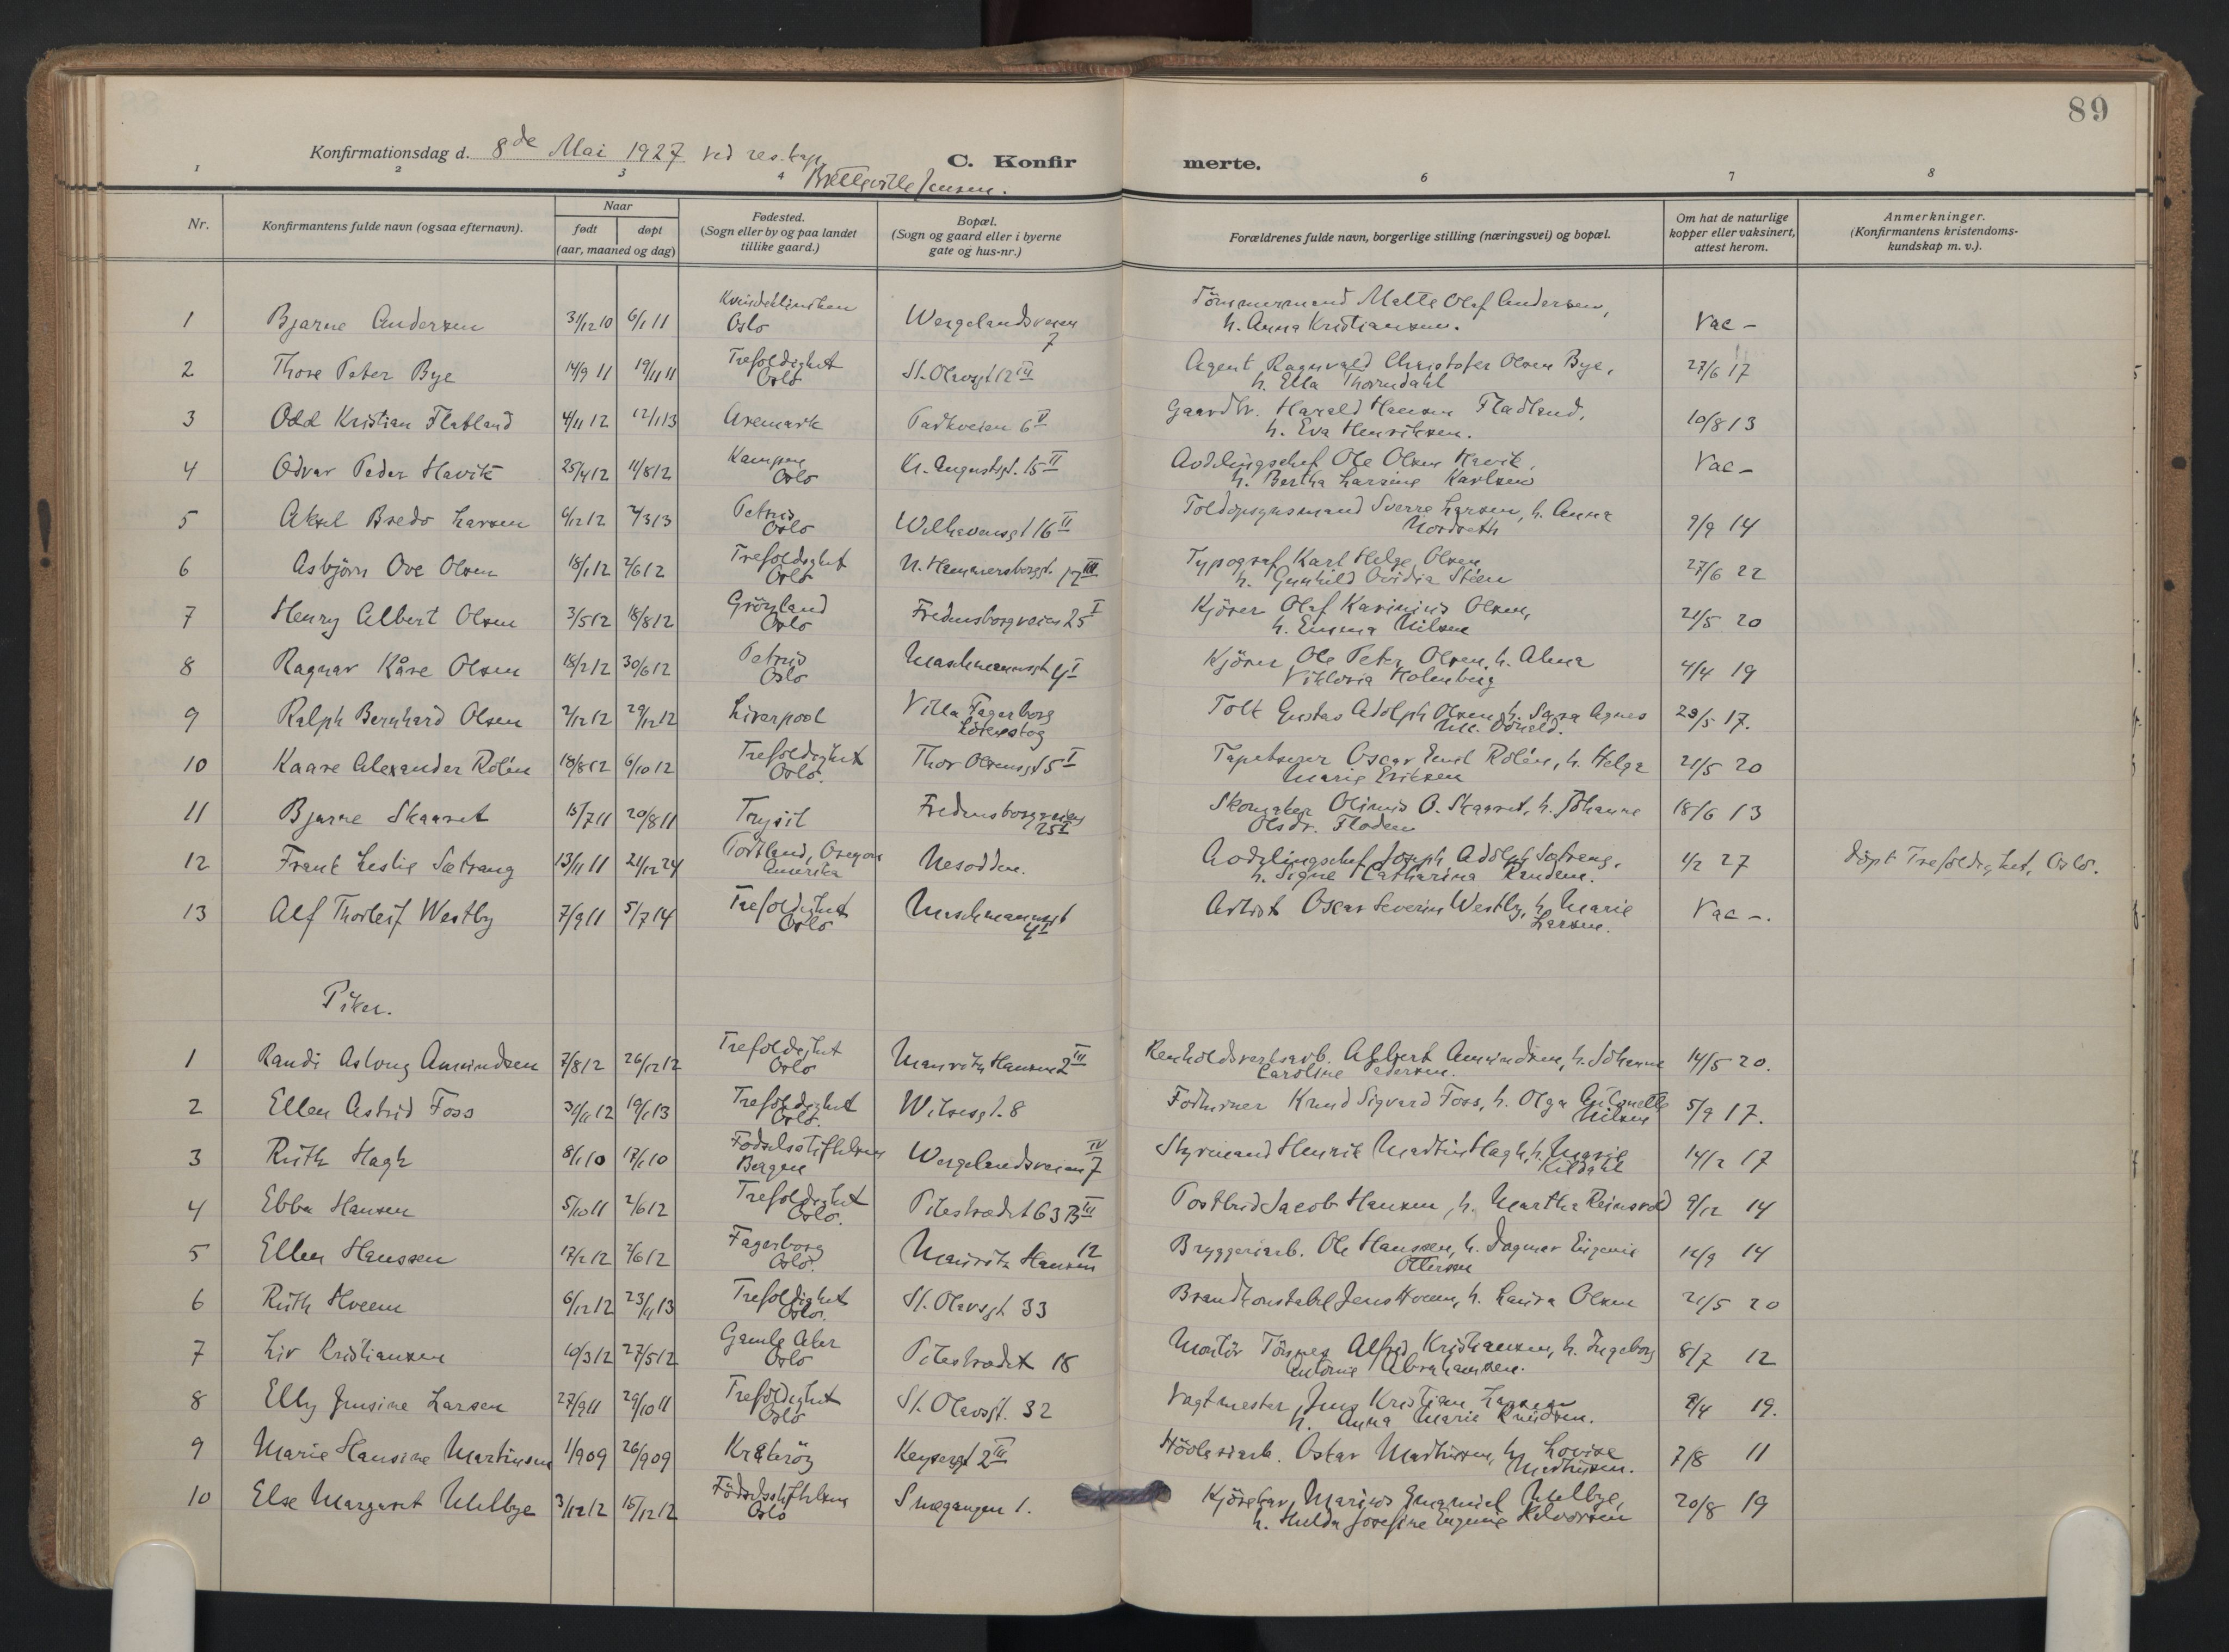 89
Konfirmationsdag d. 8de Mai 1927 ved res. kap.
Bretteville Jensen.
C. Konfirmerte.
1 2 3 4 6 7 8
Nr. Konfirmantens fulde navn (ogsaa efternavn). Naar født døpt (aar, maaned og dag) Fødested. (Sogn eller by og paa landet tillike gaard.) Bopæl. (Sogn og gaard eller i byerne gate og hus-nr.) Forældrenes fulde navn, borgerlige stilling (næringsvei) og bopæl. Om hat de naturlige kopper eller vaksinert, attest herom. Anmerkninger. (Konfirmantens kristendomskundskap m. v.).
1 Bjarne Andersen 31/12 10 6/1 11 Kvindeklinikken Oslo Wergelandsveien 7 Tömmermand Olaf Andersen, h. Anna Kristiansen. Vac –
2 Thore Peter Bye 14/9 11 19/11 11 Trefoldighet Oslo St. Olavsgt 12 III Agent Ragnvald Christofer Olsen Bye, h. Ella Thorndahl 27/6 17
3 Odd Kristian Flatland 4/11 12 12/1 13 Aremark Parkveien 6 V Gaardbr. Harald Hansen Fladland, h. Eva Henriksen. 10/8 13
4 Odvar Peder Havik 25/4 12 11/8 12 Kampen Oslo Kr. Augustsgt. 15 II Avdelingschef Ole Olsen Havik, h. Bertha Larsine Karlsen Vac –
5 Aksel Bredo Larsen 6/12 12 2/3 13 Petrus Oslo Welhavensgt 16 II Toldopsynsmand Sverre Larsen, h. Anna Nordseth 9/9 14
6 Asbjörn Ove Olsen 18/1 12 2/6 12 Trefoldighet Oslo N. Hammersborggt. III Typograf Karl Helge Olsen, h. Gunhild Ovidia Stéen 27/6 22
7 Henry Albert Olsen 3/5 12 18/8 12 Grönland Oslo Fredensborgveien 25 I Kjörer Olaf Karinius Olsen, h. Emma Nilsen 21/5 20
8 Ragnar Kåre Olsen 18/2 12 30/6 12 Petrus Oslo Maschmannsgt 4 I Kjörer Ole Peter Olsen, h. Alma Viktoria Holmberg 4/4 19
9 Ralph Bernhard Olsen 2/12 12 29/12 12 Liverpool Villa Fagerborg Tolk Gustav Adolph Olsen, h. Sara Agnes 23/5 17.
10 Kaare Alexander Rolén 18/8 12 6/10 12 Trefoldighet Oslo. Thor Olsensgt 5 I Tapetserer Oscar Emil Rolén, h. Helga Marie Eriksen 21/5 20
11 Bjarne Skaaret 15/7 11 20/8 11 Trysil Fredensborgveien 25 I Skomaker Olinus O. Skaaret, h. Johanne Olsdr. Floden 18/6 13
12 Frank Leslie Sætrang 13/11 11 21/12 24 Portland, Oregon Amerika Nesodden. Avdelingschef Joseph Adolph Sætrang, h. Signe Catharina Randem. 1/2 27 döpt Trefoldighet, Oslo.
13 Alf Thorleif Westby 7/9 11 5/7 14 Trefoldighet Oslo Maschmannsgt 4 I Artist Oscar Severin Westby, h. Marie Larsen. Vac –.
Piker.
1 Randi Aslaug Amundsen 7/8 12 26/12 12 Trefoldighet Oslo Mauritz Hansens 2 III Renholdsverksarb. Albert Amundsen, h. Johanne Caroline Pedersen. 14/5 20.
2 Ellen Astrid Foss 3/11 12 19/1 13 Trefoldighet Oslo. Wilsesgt. 8 Knud Sigvard Foss, h. Olga Antonette Nilsen 5/9 17.
3 Ruth Hagh 8/1 10 17/1 10 Fødselsstiftelsen Bergen Wergelandsveien 7 IV Styrmand Henrik Martin Hagh, h. Marie Kildahl 14/2 17
4 Ebba Hansen 5/10 11 2/6 12 Trefoldighet Oslo. Pilestrædet 63 B III Postbud Jacob Hansen, h. Martha Reinsvold 9/12 14
5 Ellen Hanssen 17/2 12 2/6 12 Fagerborg Oslo. Mauritz Hansen 12 Bryggeriarb. Ole Hanssen, h. Dagmar Eugenie Ottersen 14/9 14
6 Ruth Hveem 6/12 12 23/11 13 Trefoldighet Oslo. St. Olavsgt 33 Brandkonstabel Jens Hveem, h. Laura Olsen 21/5 20
7 Liv Kristiansen 10/3 12 27/5 12 Gamle Aker Oslo Pilestrædet 18 Montör Tönnes Alfred Kristiansen, h. Ingeborg Antonie Abrahamsen. 8/7 12
8 Elly Jensine Larsen 27/9 11 29/10 11 Trefoldighet Oslo St. Olavsgt. 32 Vagtmester Jens Kristian Larsen h. Anna Marie Knudsen. 8/4 19.
9 Marie Hansine Martinsen 1/9 09 26/9 09 Kråkeröy Keysersgt 2 III Høvleriarb. Oskar Martinsen, h. Lovise Martinsen. 7/8 11
10 Else Margaret Melbye 3/12 12 15/12 12 Födselsstiftelsen Oslo Smegangen 1. Kjörekar, Marius Emanuel Melbye, h. Hulda Josefine Eugenie Halvorsen 20/8 19